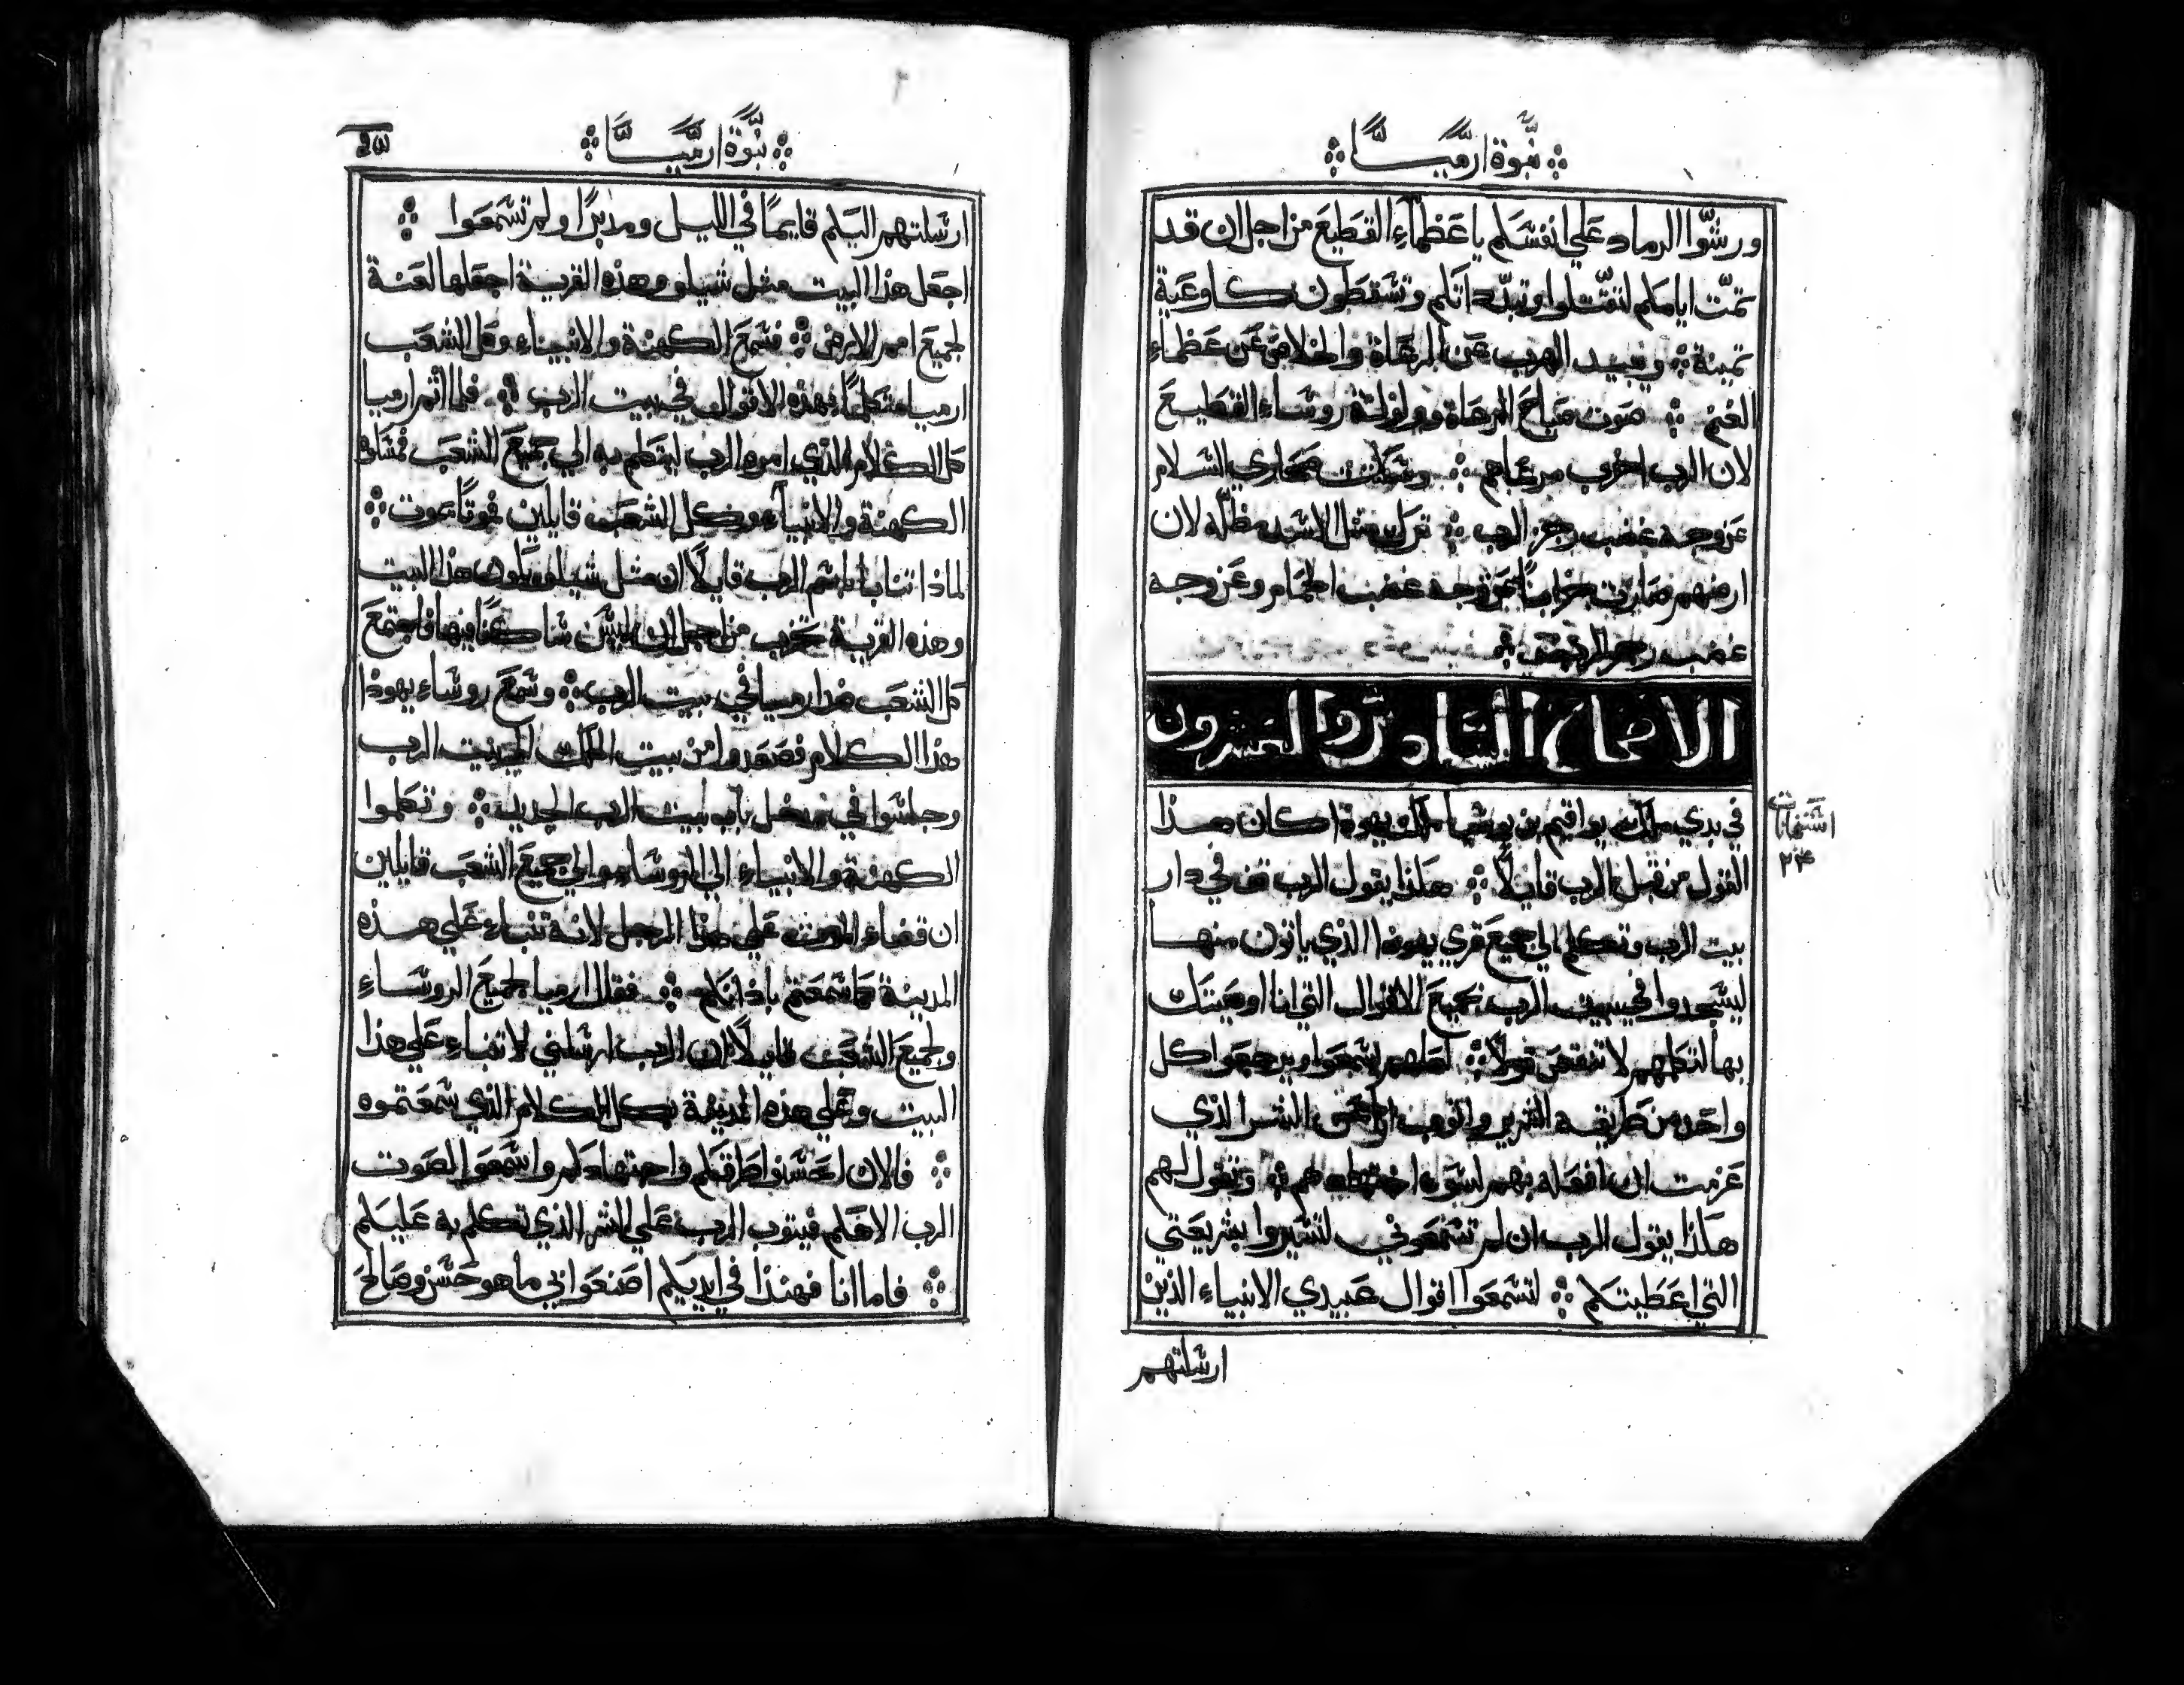 نبوة ارميا
ورشوا الرماد علي انفسكم يا عظماء القطيع من اجل ان قد
تمت ايامكم لتقتلوا وتبدداتكم وتسقطون كاوعية
تمينة ويبيد الهرب عن الرعاة والخلاص عن عظماء
الغنم صوت صياح الرعاة وولولة روساء القطيع
لان الرب اخرب مرعاهم وسكتت صحاري السلام
عن وجه غضب رجز الرب ترك مثل الاسد مظله لان
ارضهم صارت خرابا من وجه غضب الحمام وعن وجه
غضب رجز الرب
الاصحاح السادس والعشرون
في بدي ملك يواقيم بن يوشيا ملك يهوذا كان هذا
القول من قبل الرب قايلا هكذا يقول الرب قف في دار
بيت الرب وتكلم الي جميع قري يهوذا الذي ياتون منها
ليسجدوا في بيت الرب جميع الاقوال التي انا اوصيتك
بها لتكلمهم لا تنقص قولا لعلهم يسمعوا ويرجعوا كل
واحد من طريقه الشرير واتوب انا عن الشر الذي
عزمت ان افعله بهم لسوء اجتهادهم وتقول لهم
هكذا يقول الرب ان لم تسمعوني لتسيروا بشريعتي
التي اعطيتكم لتسمعوا اقوال عبيدي الانبياء الذين
ارسلتهم
نبوة ارميا
ارسلتهم اليكم قايما في الليل ومدبرا ولم تسمعوا
اجعل هذا البيت مثل شيلو وهذه القرية اجعلها لعنة
لجميع امم الارض فسمع الكهنة والانبياء وكل الشعب
ارميا متكلما بهذه الاقوال في بيت الرب فلما اتم ارميا
كل الكلام الذي امره الرب ليتكلم به الي جميع الشعب فمسكوه
الكهنة والانبياء وكل الشعب قايلين موتا يموت
لماذا تنبا باسم الرب قايلا ان مثل شيلو يكون هذا البيت
وهذه القرية تخرب من اجل ان ليس ساكنا فيها فاجتمع
كل الشعب ضد ارميا في بيت الرب وسمع روساء يهوذا
هذا الكلام فصعدوا من بيت الملك الي بيت الرب
وجلسوا في مدخل باب بيت الرب الجديد وتكلموا
الكهنة والانبياء الي الروساء والي جميع الشعب قايلين
ان قضاء الموت علي هذا الرجل لانه تنباء علي هذه
المدينة كما سمعتم باذانكم فقال ارميا لجميع الروساء
ولجميع الشعب قايلا ان الرب ارسلني لاتنباء علي هذا
البيت وعلي هذه المدينة بكل الكلام الذي سمعتموه
فالان احسنوا طرقكم واجتهادكم واسمعوا لصوت
الرب الاهكم فيتوب الرب علي الشر الذي تكلم به عليكم
فاما انا فهنذا في ايديكم اصنعوا بي ما هو حسن وصالح